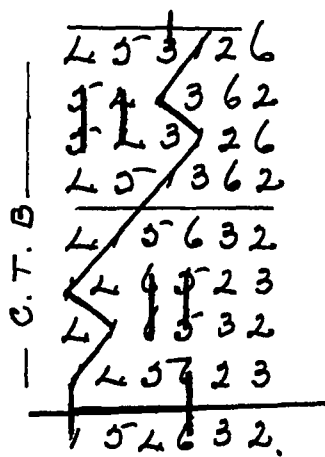 C. T. B
4 5 3 1 2 6
5 4 1 3 6 2
5 4 3 1 2 6
4 5 1 3 6 2
4 1 5 6 3 2
1 4 6 5 2 3
4 1 6 5 3 2
1 4 5 6 2 3
1 5 4 6 3 2.